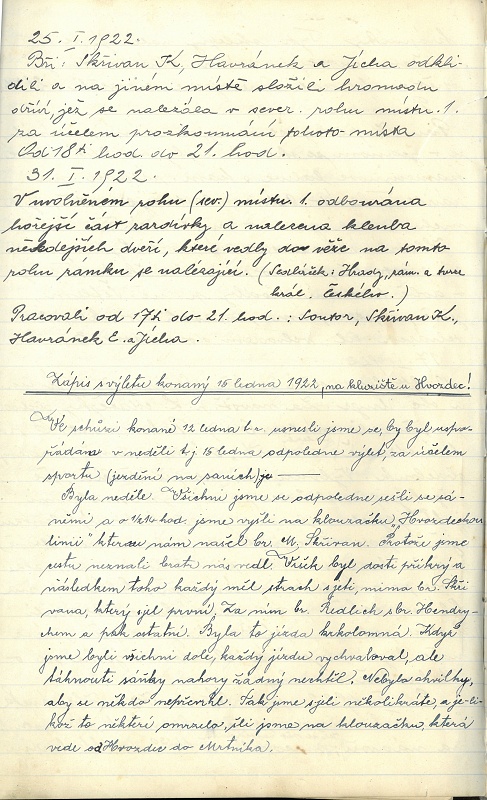 25. I. 1922.
Bři: Skřivan K, Havránek a Jícha odkli-
dili a na jiném místě složili hromadu
dříví, jež se nalezála v sever. rohu místn. 1.
za účelem prozkoumání tohoto místa
Od 18ti hod. do 21. hod.
31. I. 1922.
V uvolněném rohu (sev.) místn. 1. odbourána
hořejší část zazdívky a nalezena klenba
někdejších dveří, které vedly do věže na tomto
rohu zámku se nalézající. (Sedláček: Hrady, zám. a tvrze
král. Českého.)
Pracovali od 17ti do 21. hod.: Soutor, Skřivan K.,
Havránek E. a Jícha.
Zápis s výletu konaný 15 ledna 1922, na kluziště u Hvozdec!
Ve schůzi konané 12 ledna t.r. usnesli jsme se, by byl uspo-
řádán v neděli t.j. 15 ledna odpoledne výlet, za účelem
sportu (jezdění na saních)
Byla neděle. Všichni jsme se odpoledne sešli se sá-
němi a o hod. jsme vyšli na klouzačku "Hvozdeckou
linii" kterou nám našel br. M. Skřivan. Protože jsme
cestu neznali bratr nás vedl. Vršík byl dosti příkrý a
následkem toho každý měl strach sjeti, mimo br. Skři
vana, který sjel první. Za ním br. Redlich s br. Hendry-
chem a pak ostatní. Byla to jízda krkolomná. Když
jsme byli všichni dole, každý jízdu vychvaloval, ale
táhnouti sáňky nahoru žádný nechtěl. Nebylo chvilky,
aby se někdo nepřevrhl. Tak jsme sjeli několikráte, a jeli-
kož to některé omrzelo, šli jsme na klouzačku, která
vede od Hvozdce do Mrtníka.